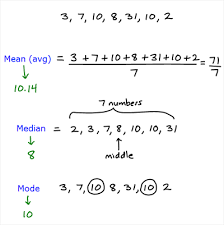 3, 7, 10, 8, 31, 10, 2
Mean (avg) = 3+7+10+8+31+10+2 / 7 = 71/7
10.14
7 numbers
Median = 2, 3, 7, 8, 10, 10, 31
8
middle
Mode 3, 7, 10 8, 31, 10 2
10